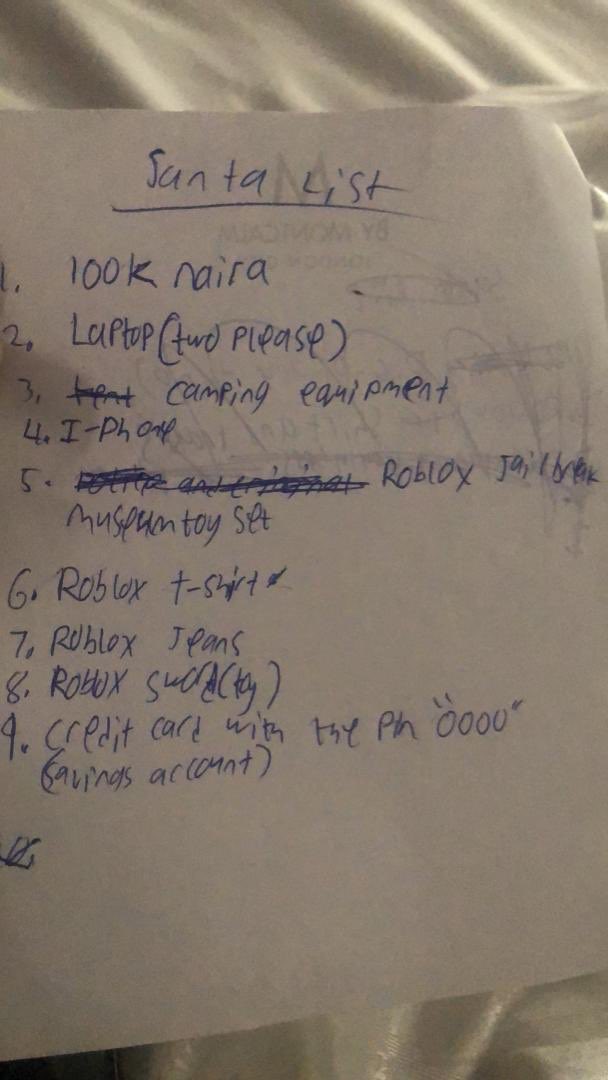 Santa List
1. 100k naira
2. Laptop (two please)
3. tent camping equipment
4. I-Phone
5. Roblox Jailbreak
museum toy set
6. Roblox t-shirt
7. Roblox Jeans
8. Roblox sword (toy)
9. credit card with the pin "0000"
(savings account)
BY MONTCALM
LONDON